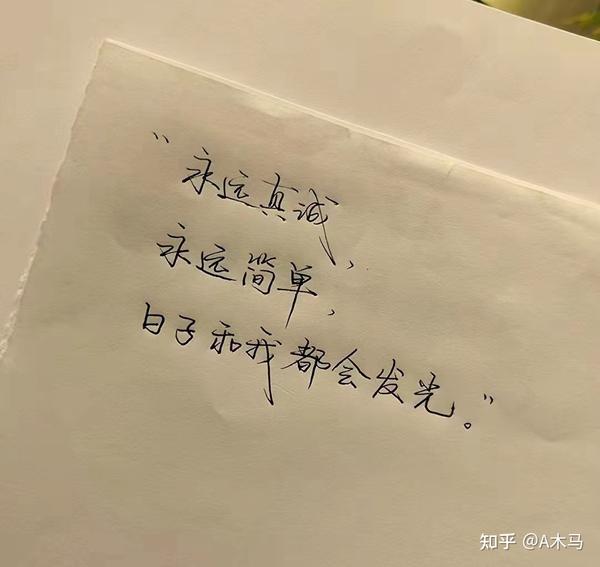 “永远真诚，
永远简单，
日子和我都会发光。”
知乎 @A木马